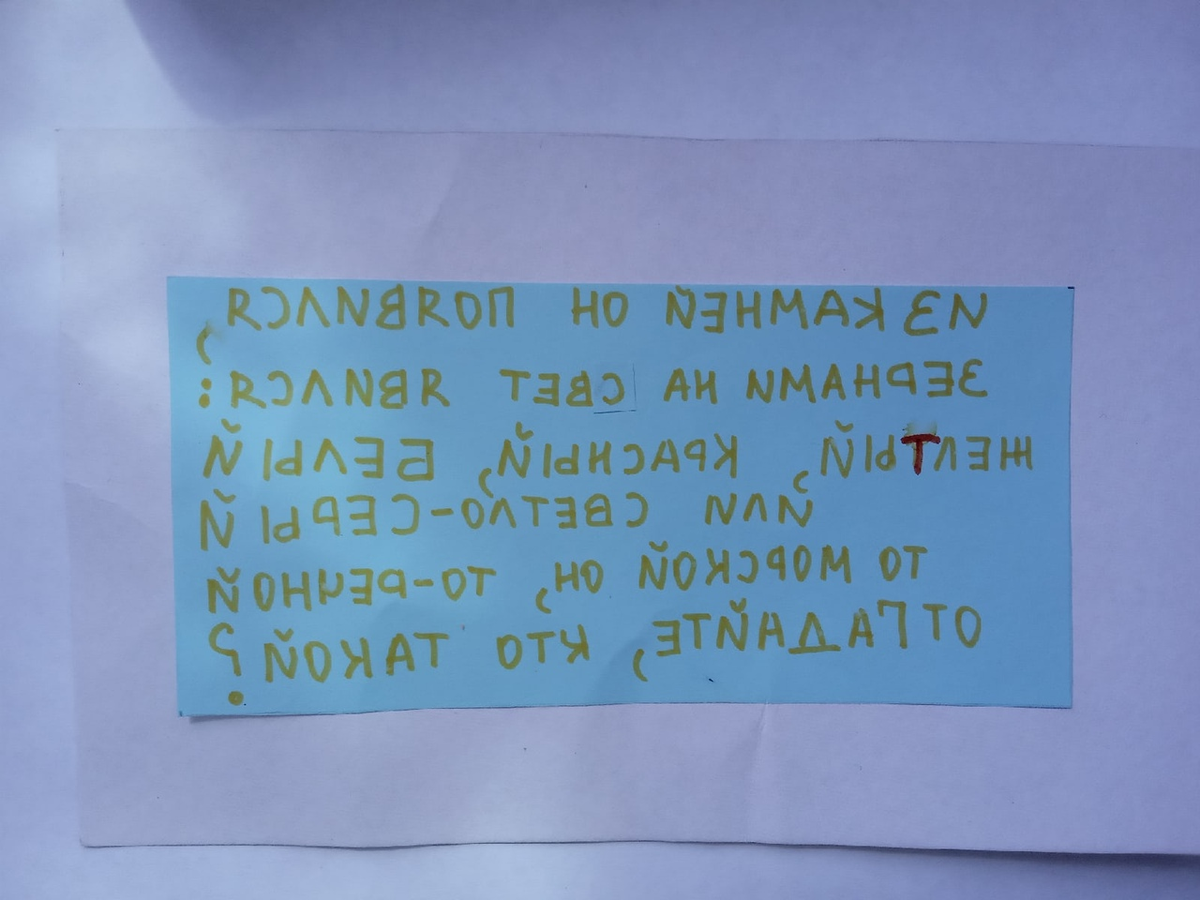 ИЗ КАМНЕЙ ОН ПОЯВИЛСЯ,
ЗЕРНАМИ НА СВЕТ ЯВИЛСЯ:
ЖЕЛТЫЙ, КРАСНЫЙ, БЕЛЫЙ
ИЛИ СВЕТЛО-СЕРЫЙ
ТО МОРСКОЙ ОН, ТО-РЕЧНОЙ
ОТГАДАЙТЕ, КТО ТАКОЙ?